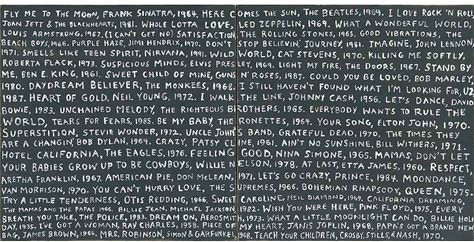 FLY ME TO THE MOON, FRANK SINATRA, 1964. HERE COMES THE SUN, THE BEATLES, 1969. I LOVE ROCK 'N ROLL,
JOAN JETT & THE BLACKHEARTS, 1981. WHOLE LOTTA LOVE, LED ZEPPELIN, 1969. WHAT A WONDERFUL WORLD,
LOUIS ARMSTRONG, 1967. (I CAN'T GET NO) SATISFACTION, THE ROLLING STONES, 1965. GOOD VIBRATIONS, THE
BEACH BOYS, 1966. PURPLE HAZE, JIMI HENDRIX, 1970. DON'T STOP BELIEVIN' JOURNEY, 1981. IMAGINE, JOHN LENNON,
1971. SMELLS LIKE TEEN SPIRIT, NIRVANA, 1991. WILD WORLD, CAT STEVENS, 1970. KILLING ME SOFTLY,
ROBERTA FLACK, 1973. SUSPICIOUS MINDS, ELVIS PRESLEY, 1969. LIGHT MY FIRE, THE DOORS, 1967. STAND BY
ME, BEN E. KING, 1961. SWEET CHILD OF MINE, GUNS N' ROSES, 1987. COULD YOU BE LOVED, BOB MARLEY,
1980. DAYDREAM BELIEVER, THE MONKEES, 1968. I STILL HAVEN'T FOUND WHAT I'M LOOKING FOR, U2,
1987. HEART OF GOLD, NEIL YOUNG, 1972. I WALK THE LINE, JOHNNY CASH, 1956. LET'S DANCE, DAVID
BOWIE, 1983. UNCHAINED MELODY, THE RIGHTEOUS BROTHERS, 1965. EVERYBODY WANTS TO RULE THE
WORLD, TEARS FOR FEARS, 1985. BE MY BABY, THE RONETTES, 1964. YOUR SONG, ELTON JOHN, 1970.
SUPERSTITION, STEVIE WONDER, 1972. UNCLE JOHN'S BAND, GRATEFUL DEAD, 1970. THE TIMES THEY
ARE A CHANGIN', BOB DYLAN, 1964. CRAZY, PATSY CLINE, 1961. AIN'T NO SUNSHINE, BILL WITHERS, 1971.
HOTEL CALIFORNIA, THE EAGLES, 1976. FEELING GOOD, NINA SIMONE, 1965. MAMAS, DON'T LET
YOUR BABIES GROW UP TO BE COWBOYS, WILLIE NELSON, 1978. AT LAST, ETTA JAMES, 1960. RESPECT,
ARETHA FRANKLIN, 1967. AMERICAN PIE, DON MCLEAN, 1971. LET'S GO CRAZY, PRINCE, 1984. MOONDANCE,
VAN MORRISON, 1970. YOU CAN'T HURRY LOVE, THE SUPREMES, 1966. BOHEMIAN RHAPSODY, QUEEN, 1975.
TRY A LITTLE TENDERNESS, OTIS REDDING, 1966. SWEET CAROLINE, NEIL DIAMOND, 1969. CALIFORNIA DREAMING,
THE MAMAS AND THE PAPAS, 1966. BILLIE JEAN, MICHAEL JACKSON, 1982. WISH YOU WERE HERE, PINK FLOYD, 1975. EVERY
BREATH YOU TAKE, THE POLICE, 1983. DREAM ON, AEROSMITH, 1973. WHAT A LITTLE MOONLIGHT CAN DO, BILLIE
DAY, 1935. I'VE GOT A WOMAN, RAY CHARLES, 1958. PIECE OF MY HEART, JANIS JOPLIN, 1968. PAPA'S GOT A BRAND NEW
BAG, JAMES BROWN, 1966. MRS. ROBINSON, SIMON & GARFUNKEL, 1968. TEACH YOUR CHILDREN, CROSBY, STILLS, & NASH, 1970.